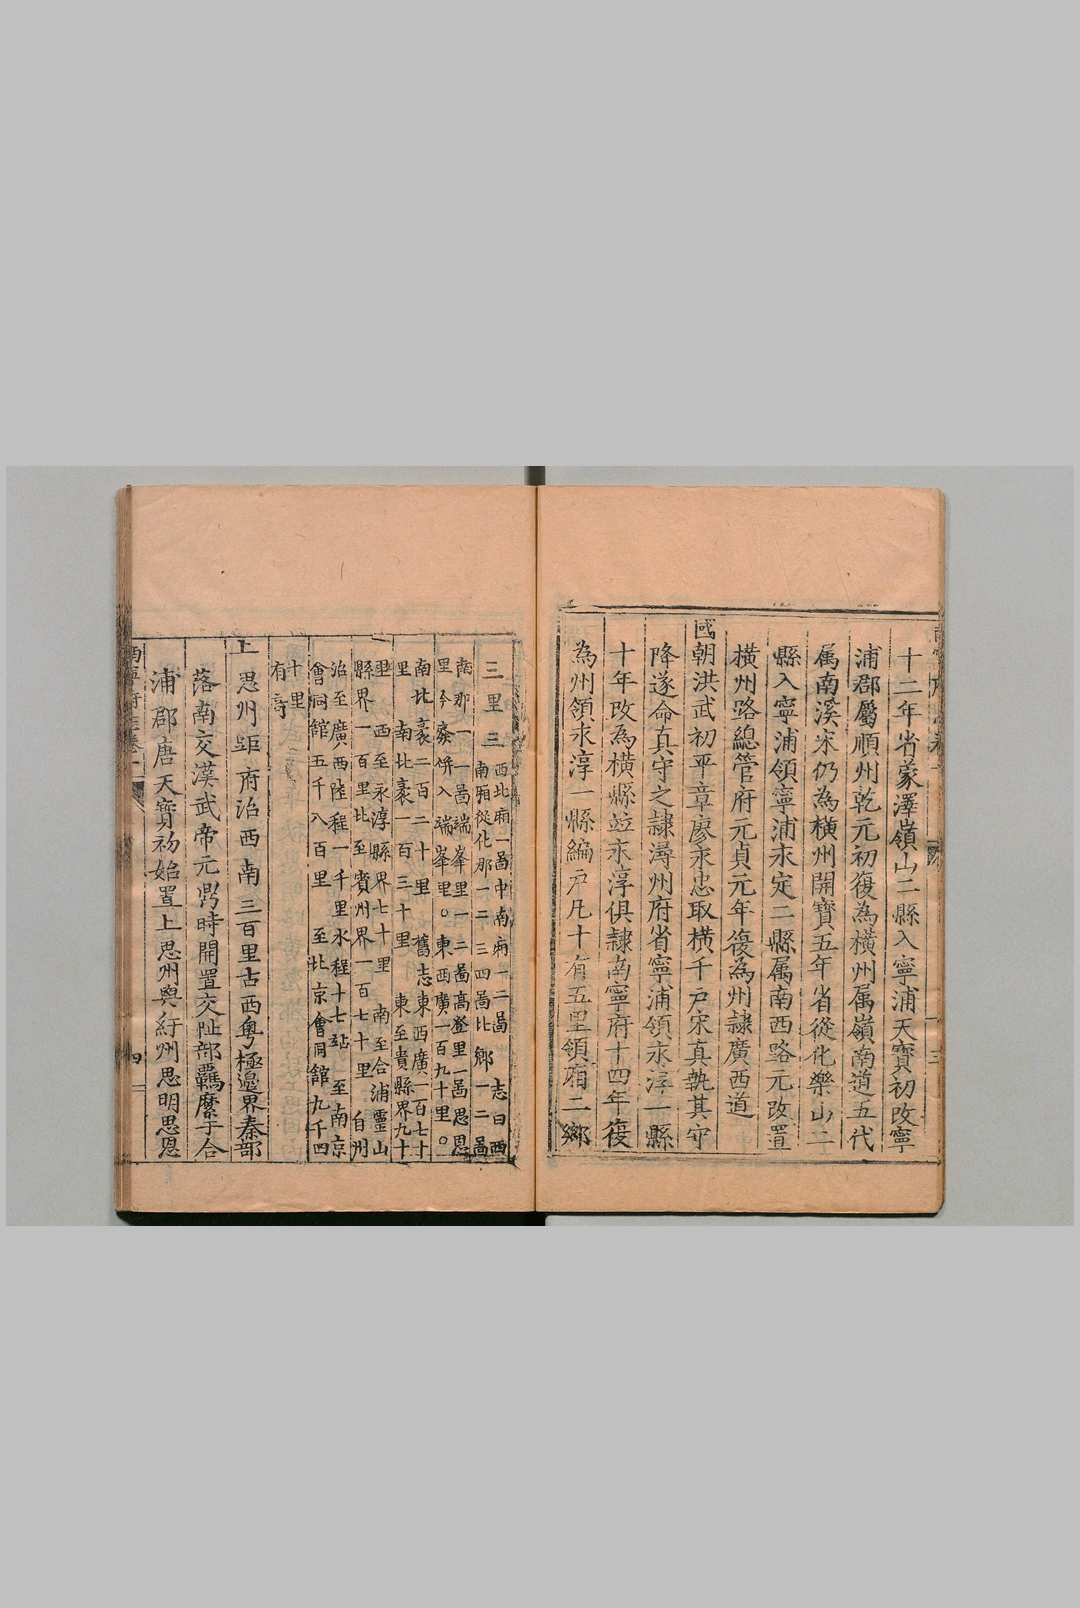 十二年省蒙澤嶺山二縣入寧浦天寶初改寧
浦郡屬順州乾元初復為橫州属嶺南道五代
属南溪宋仍為橫州開寶五年省從化樂山二
縣入寧浦領寧浦永定二縣属南西路元改置
橫州路總管府元貞元年復為州隸廣西道
國朝洪武初平章廖永忠取橫千戶宋真執其守
降遂命真守之隸潯州府省寧浦領永淳一縣
十年改為橫縣並永淳俱隸南寧府十四年復
為州領永淳一縣編戶凡十有五里領廂二鄉
三里三
西北廂一啚中南廂一二啚 志曰西
南廂從化那一二三四啚北鄉一二啚
南那 一一啚端峯里一二啚高登里一啚思恩
里今廢併入端峯里○東西廣一百九十里○
南北袤二百二十里 舊志東西廣一百七十
里 南北袤一百三十里 東至貴縣界九十
里 西至永淳縣界七十里 南至合浦靈山
縣界一百里北至賓州界一百七十里 自州
治至廣西陸程一千里水程十七站 至南京
會同館五千八百里 至北京會同館九千四
十里
有奇
上思州距府治西南三百里古西粤極邉界秦部
落南交漢武帝元鼎時開置交趾部覊縻于合
浦郡唐天寶初始置上思州與紆州思明思恩
三
四